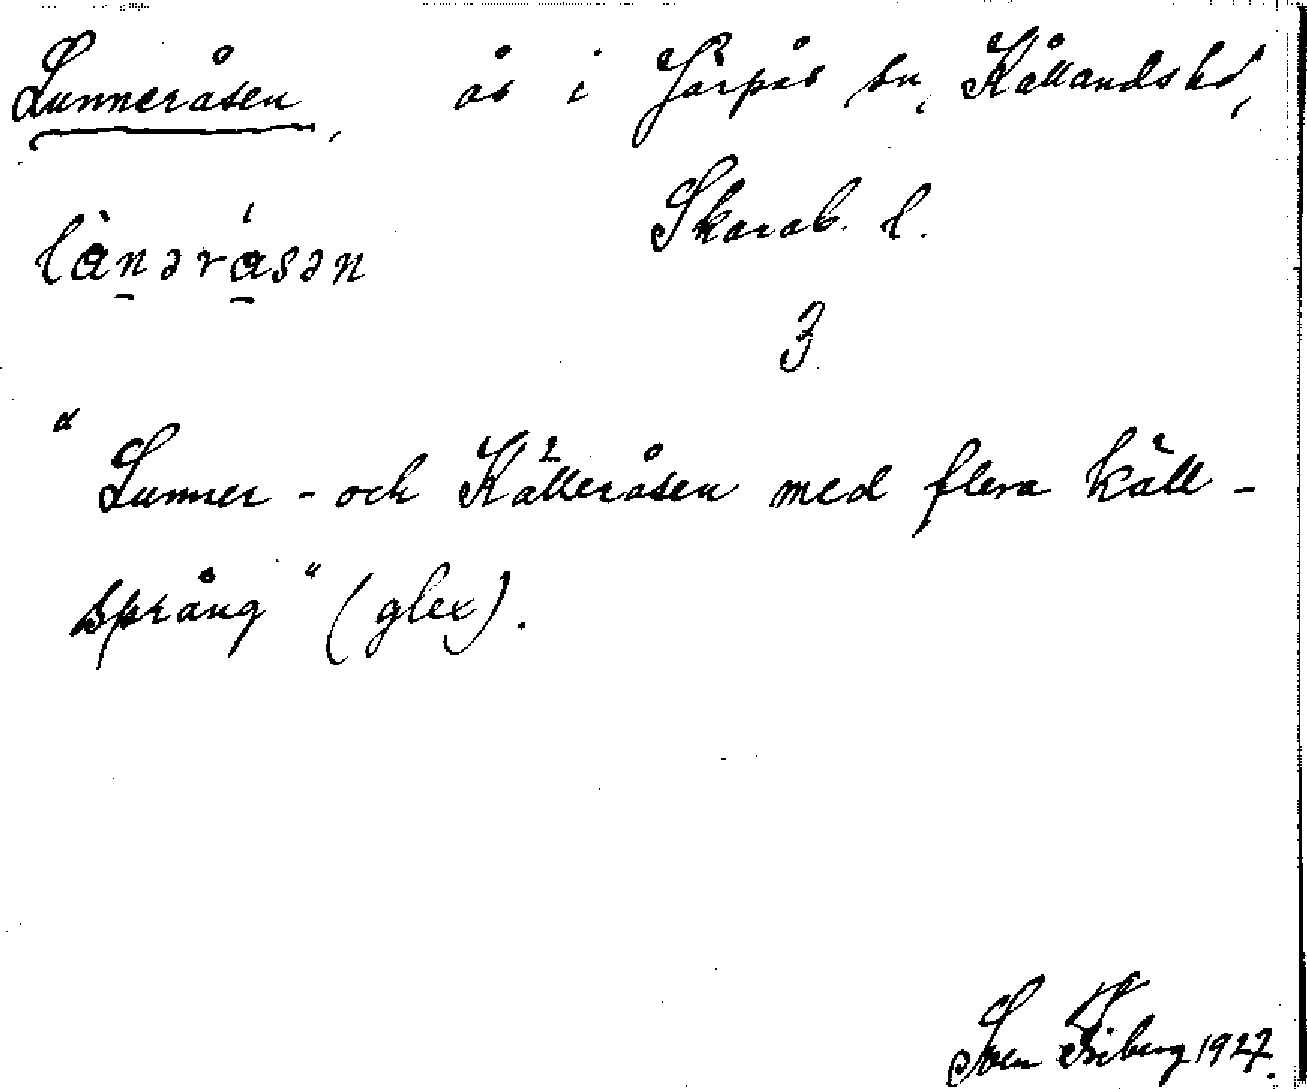 Lunneråsen, ås i Järpås sn, Kållands hd,
Skarab. l.
lànəråsən
3
"Lunner- och Källeråsen med flera käll-
språng" (glex).
Sven Friberg 1927.